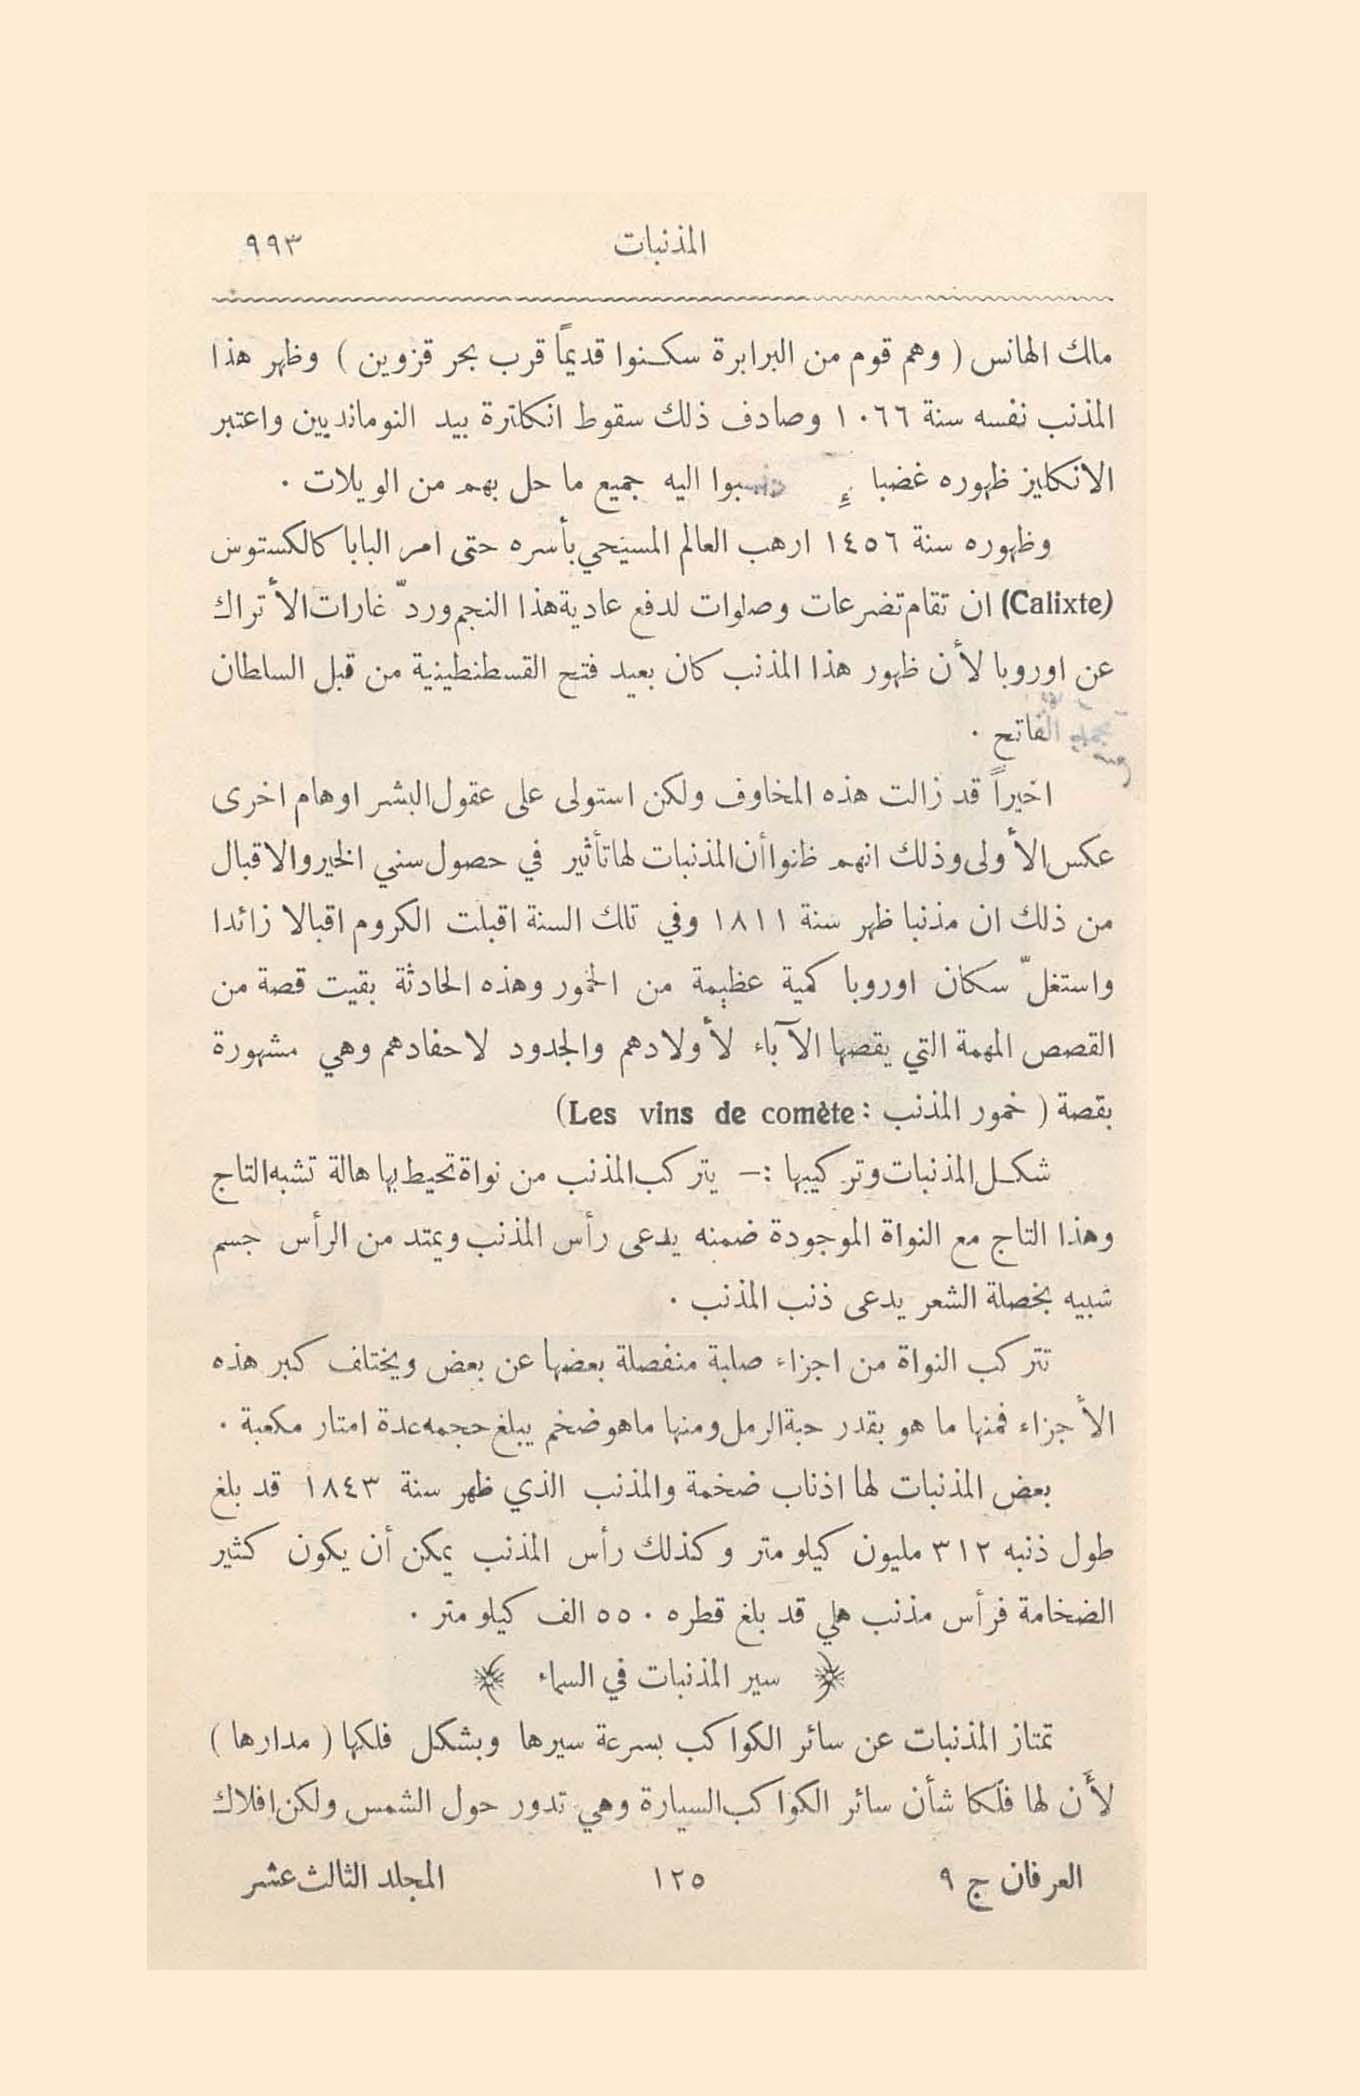 المذنبات ٩٩٣
مالك الهانس ( وهم قوم من البرابرة سكنوا قديماً قرب بحر قزوين ) وظهر هذا
المذنب نفسه سنة ١٠٦٦ وصادف ذلك سقوط انكلترة بيد النورمانديين واعتبر
الانكليز ظهوره غضبا سبوا اليه جميع ما حل بهم من الويلات .
وظهوره سنة ١٤٥٦ ارهب العالم المسيحي بأسره حتى امر البابا كالكستوس
(Calixte) ان تقام تضرعات وصلوات لدفع عادية هذا النجم وردّ غارات الأتراك
عن اوروبا لأن ظهور هذا المذنب كان بعيد فتح القسطنطينية من قبل السلطان
الفاتح .
اخيراً قد زالت هذه المخاوف ولكن استولى على عقول البشر اوهام اخرى
عكس الأولى وذلك انهم ظنوا أن المذنبات لها تأثير في حصول سني الخير والاقبال
من ذلك ان مذنبا ظهر سنة ١٨١١ وفي تلك السنة اقبلت الكروم اقبالا زائدا
واستغلّ سكان اوروبا كمية عظيمة من الخمور وهذه الحادثة بقيت قصة من
القصص المهمة التي يقصها الآباء لأولادهم والجدود لاحفادهم وهي مشهورة
بقصة ( خمور المذنب : Les vins de comète)
شكل المذنبات وتركيبها :— يتركب المذنب من نواة تحيط بها هالة تشبه التاج
وهذا التاج مع النواة الموجودة ضمنه يدعى رأس المذنب ويمتد من الرأس جسم
شبيه بخصلة الشعر يدعى ذنب المذنب .
تتركب النواة من اجزاء صلبة منفصلة بعضها عن بعض ويختلف كبر هذه
الأجزاء فمنها ما هو بقدر حبة الرمل ومنها ما هو ضخم يبلغ حجمه عدة امتار مكعبة .
بعض المذنبات لها اذناب ضخمة والمذنب الذي ظهر سنة ١٨٤٣ قد بلغ
طول ذنبه ٣١٢ مليون كيلو متر وكذلك رأس المذنب يمكن أن يكون كثير
الضخامة فرأس مذنب هلي قد بلغ قطره ٥٥٠ الف كيلو متر .
سير المذنبات في السماء
تمتاز المذنبات عن سائر الكواكب بسرعة سيرها وبشكل فلكها ( مدارها )
لأن لها فلكا شأن سائر الكواكب السيارة وهي تدور حول الشمس ولكن افلاك
العرفان ج ٩ ١٢٥ المجلد الثالث عشر